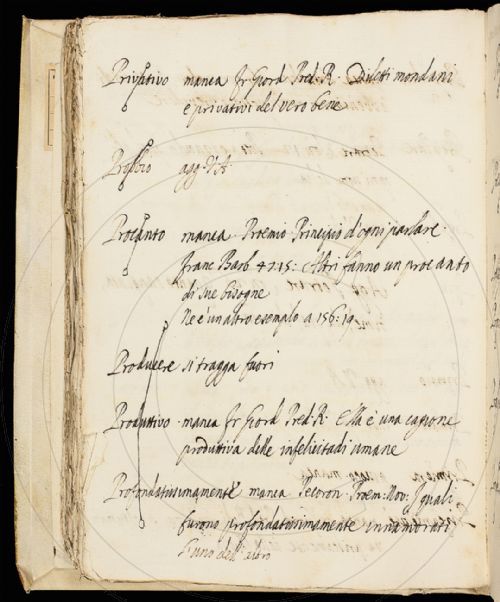 Privativo manca Fr Giord Pred. R. Diletti mondani
e privativi del vero bene
agg. V A
Procanto manca. Proemio Principio d'ogni parlare.
Franc Barb 42.15: Altri fanno un procanto
di sue bisogne
Ne è un altro esemplo a 156:19
Producere si tragga fuori
Produttivo manca Fr Giord Pred. R. Ella è una cagione
produttiva delle infelicitadi umane
Profondatissimamente manca Pecoron. Proem: Nov: I quali
furono profondatissimamente innamorati
l'uno dell'altro